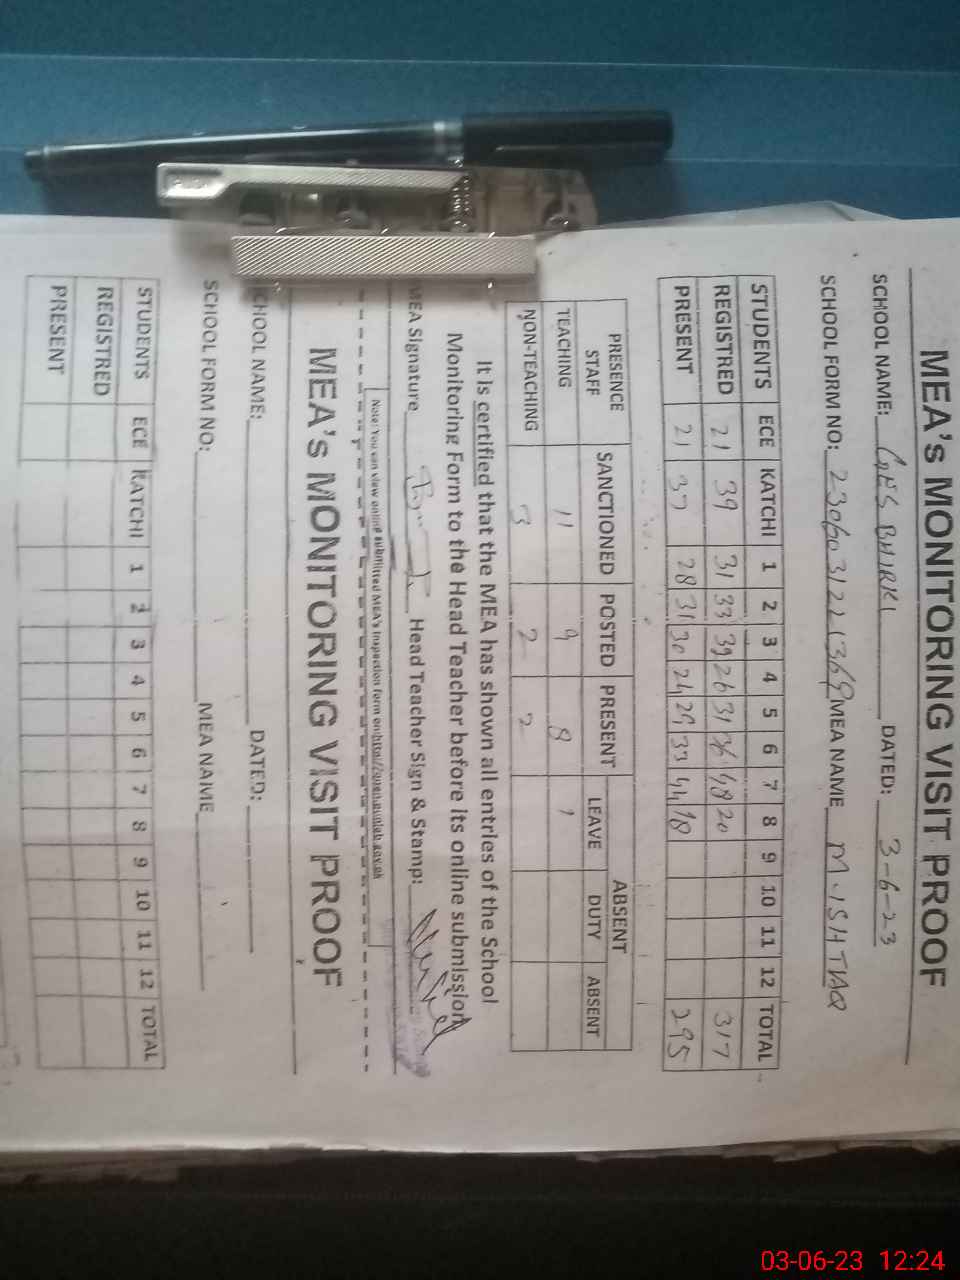 MEA's MONITORING VISIT PROOF
SCHOOL NAME: GES BHIRKI DATED: 3-6-23
SCHOOL FORM NO: MEA NAME M. ISHTIAQ
STUDENTS ECE KATCHI 1 2 3 4 5 6 7 8 9 10 11 12 TOTAL
REGISTRED 21 39 31 33 39 26 31 48 20 317
PRESENT 21 37 28 31 30 24 29 33 44 18 295
PRESENCE STAFF SANCTIONED POSTED PRESENT ABSENT
LEAVE DUTY ABSENT
TEACHING 11 9 8 1
NON-TEACHING 3 2 2
It is certified that the MEA has shown all entries of the School
Monitoring Form to the Head Teacher before its online submission
MEA Signature Head Teacher Sign & Stamp:
Note: You can view online submitted MEA's Inspection form on http://open.punjab.gov.pk
MEA's MONITORING VISIT PROOF
SCHOOL NAME: DATED:
SCHOOL FORM NO: MEA NAME
STUDENTS ECE KATCHI 1 2 3 4 5 6 7 8 9 10 11 12 TOTAL
REGISTRED
PRESENT
03-06-23 12:24